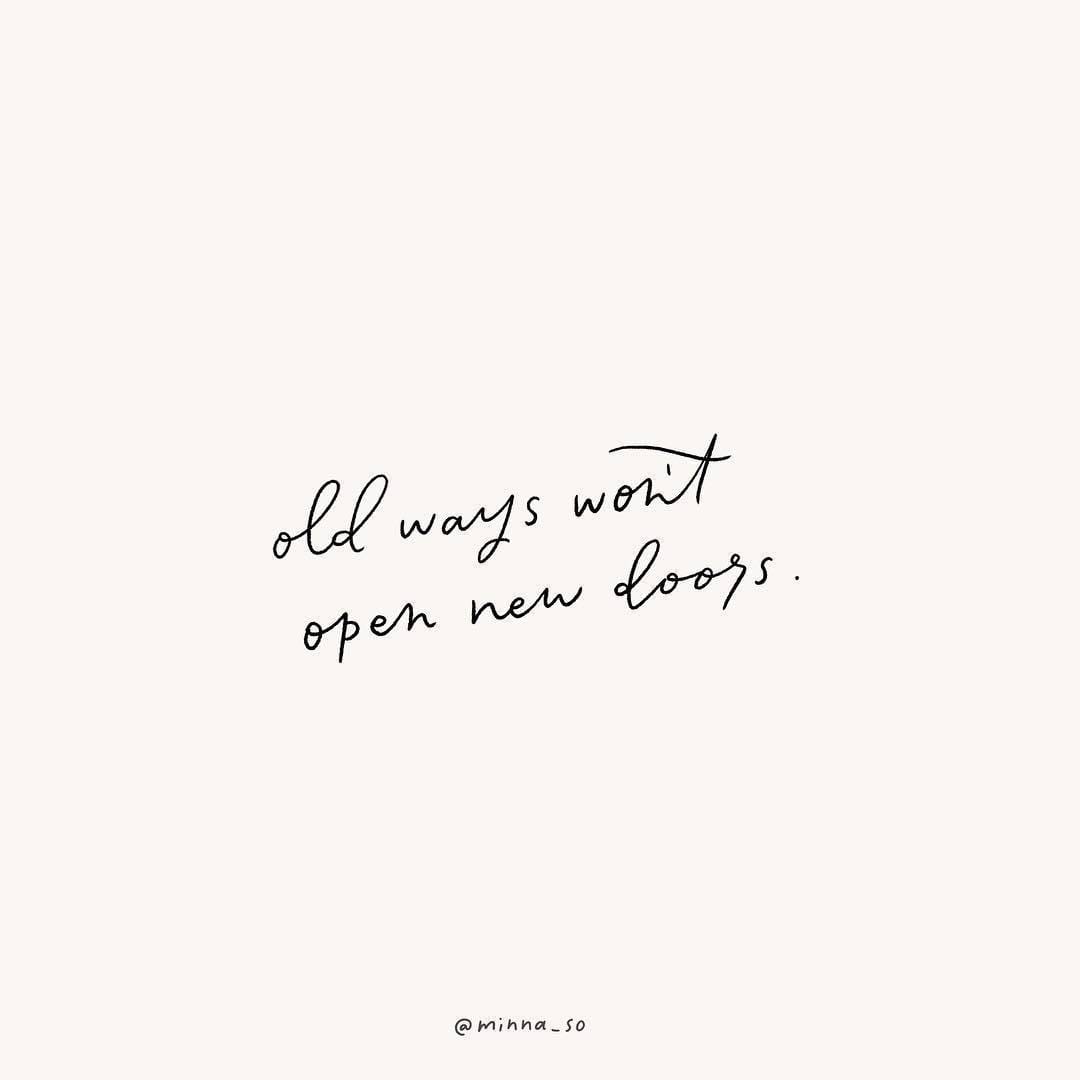 old ways won't
open new doors.
@minna_so